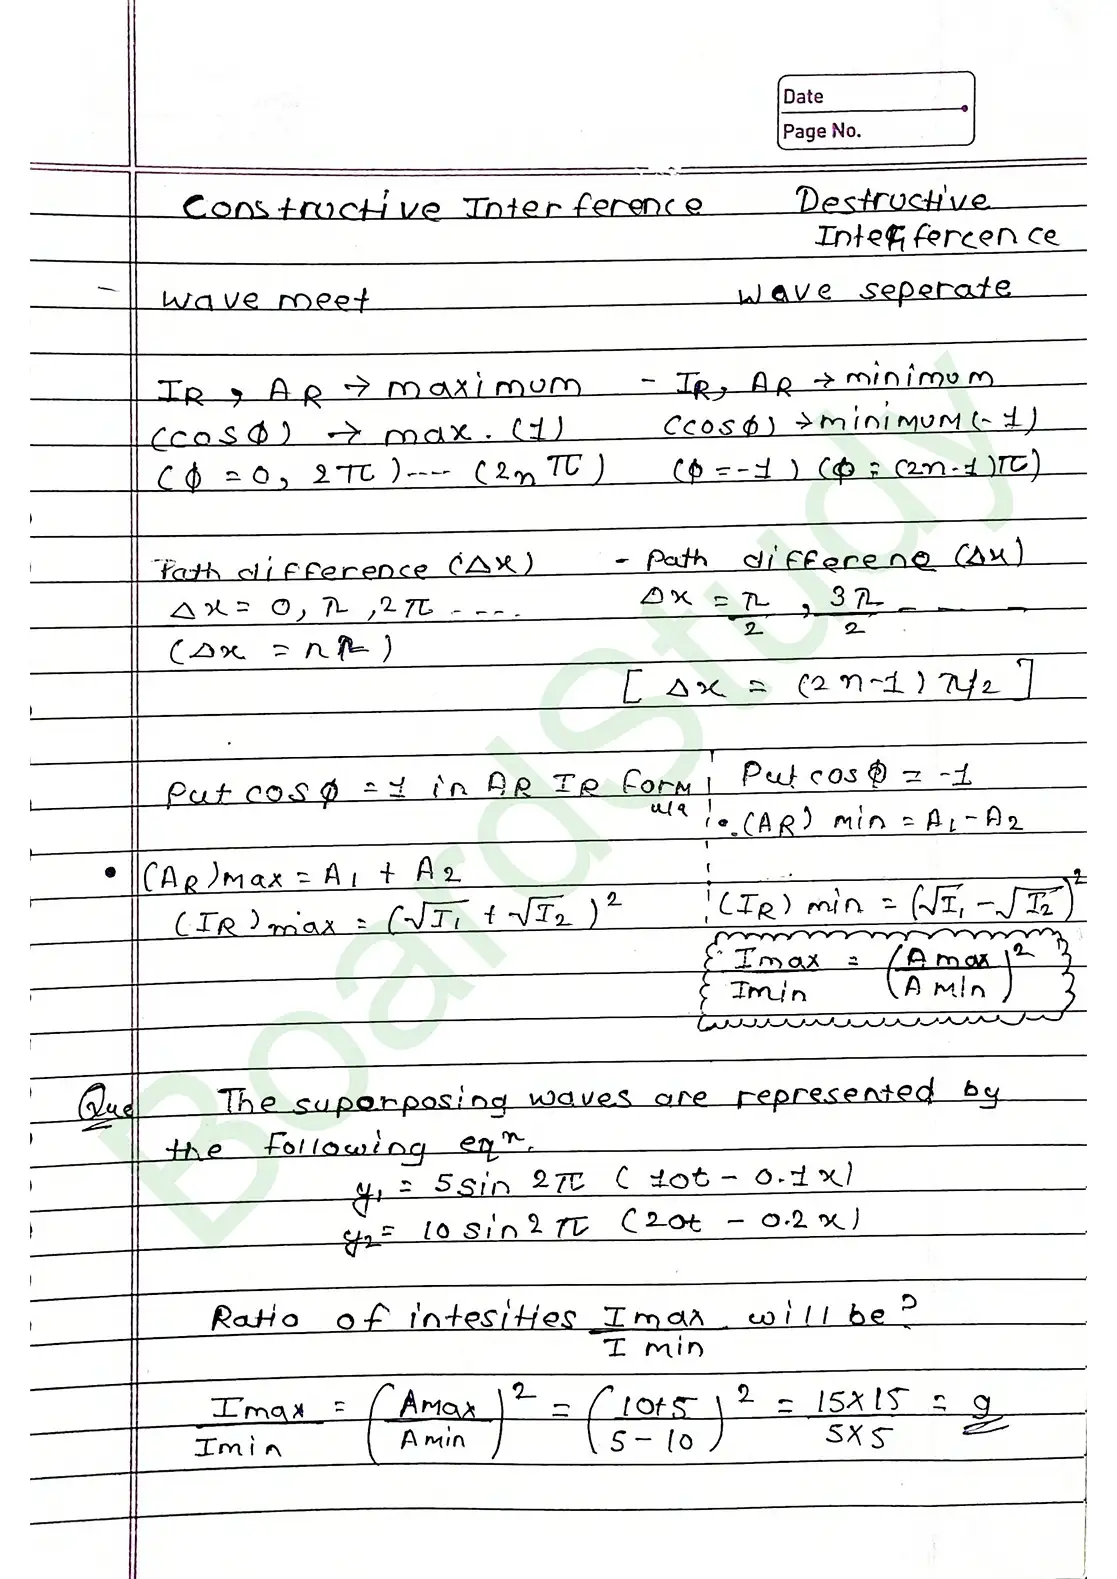 Date
Page No.
Constructive Interference
Destructive
Interfercence
- wave meet
wave seperate
IR, AR → maximum
- IR, AR → minimum
(cosϕ) → max. (1)
(cosϕ) → minimum (-1)
(ϕ = 0, 2π) ---- (2nπ)
(ϕ = -1) (ϕ = (2n-1)π)
Path difference (Δx)
- Path differene (Δx)
Δx = 0, π, 2π - ....
Δx = π/2, 3π/2 - - -
(Δx = nπ)
[Δx = (2n-1) π/2]
Put cosϕ = 1 in AR IR Form
ula
Put cosϕ = -1
•. (AR) min = A1 - A2
• (AR)max = A1 + A2
(IR) max = (√I1 + √I2)²
(IR) min = (√I1 - √I2)²
Imax/Imin = (Amax/Amin)²
Que The superposing waves are represented by
the following eqn.
y1 = 5sin 2π (10t - 0.1x)
y2 = 10 sin 2π (20t - 0.2x)
Ratio of intesities Imax/Imin will be?
Imax/Imin = (Amax/Amin)² = (10+5/5-10)² = 15X15/5X5 = 9
BoardStudy